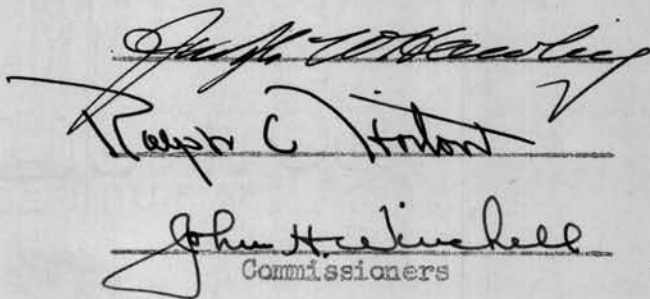 Joseph W. Hawley
Ralph C. Horton
John H. Winchell
Commissioners